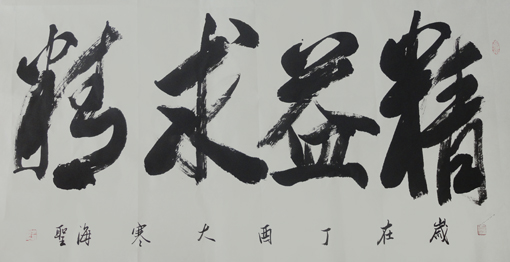 精益求精
歲在丁酉大寒海聖